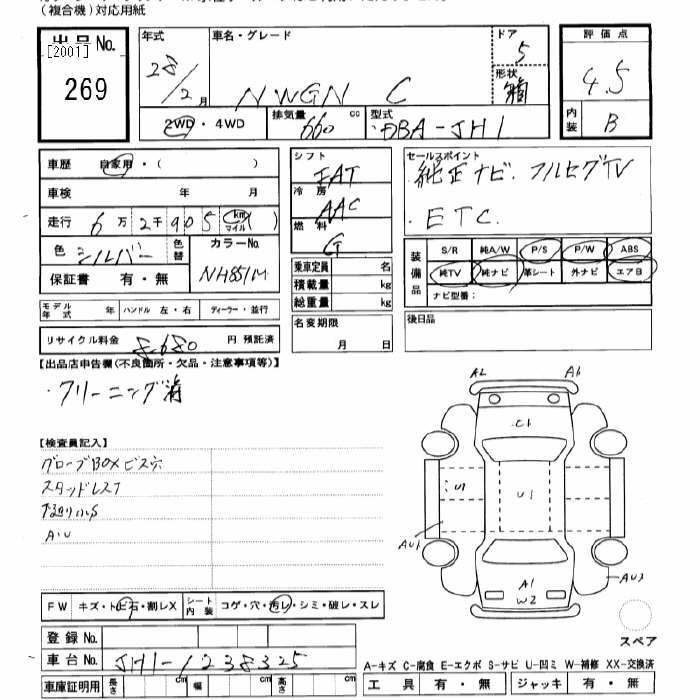 (複合機)対応用紙
出品No.
[2001]
269
年式
28/2月
車名・グレード
N WGN C
ドア
5
形状
2WD・4WD
排気量 660 cc
型式 DBA-JH1
評価点
4.5
内装 B
車歴 自家用・( )
車検 年 月
走行 6万2千905 km マイル ( )
色 シルバー 色替
カラーNo. NH851M
保証書 有・無
モデル年式 年 ハンドル 左・右 ディーラー・並行
リサイクル料金 8,680 円 預託済
シフト FAT
冷房 AAC
燃料 G
乗車定員 名
積載量 kg
総重量 kg
名変期限
月 日
セールスポイント
・純正ナビ・フルセグTV
・ETC
装備品
S/R 純A/W P/S P/W ABS
純TV 純ナビ 革シート 外ナビ エアB
ナビ型番:
後日品
【出品店申告欄(不良箇所・欠品・注意事項等)】
・クリーニング済
【検査員記入】
グローブBOXビス穴
スタッドレス
A・U
FW キズ・トビ石・割レX
シート内装 コゲ・穴・汚レ・シミ・破レ・スレ
登録No.
車台No. JH1-1238325
車庫証明用 長さ cm 幅 cm 高さ cm
A2 A6
C1
U1 U1
AU1
A1
W2
AU3
スペア
A-キズ C-腐食 E-エクボ S-サビ U-凹ミ W-補修 XX-交換済
工具 有・無 ジャッキ 有・無